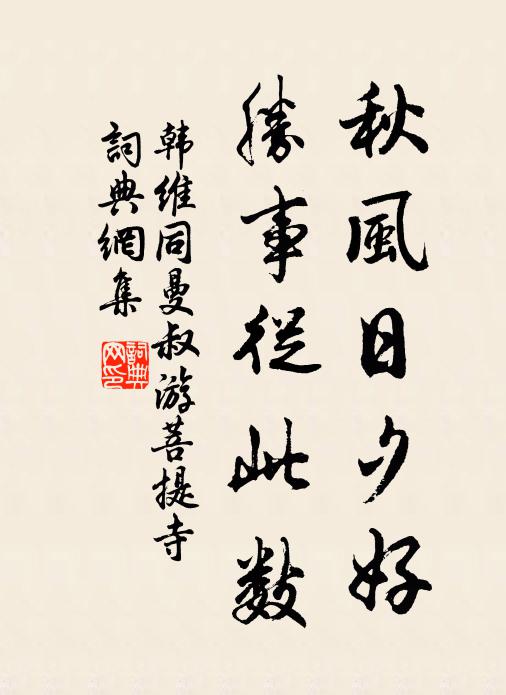 秋風日夕好
勝事從此數
韩維同曼叔游菩提寺
詞典網集
詞典
网印